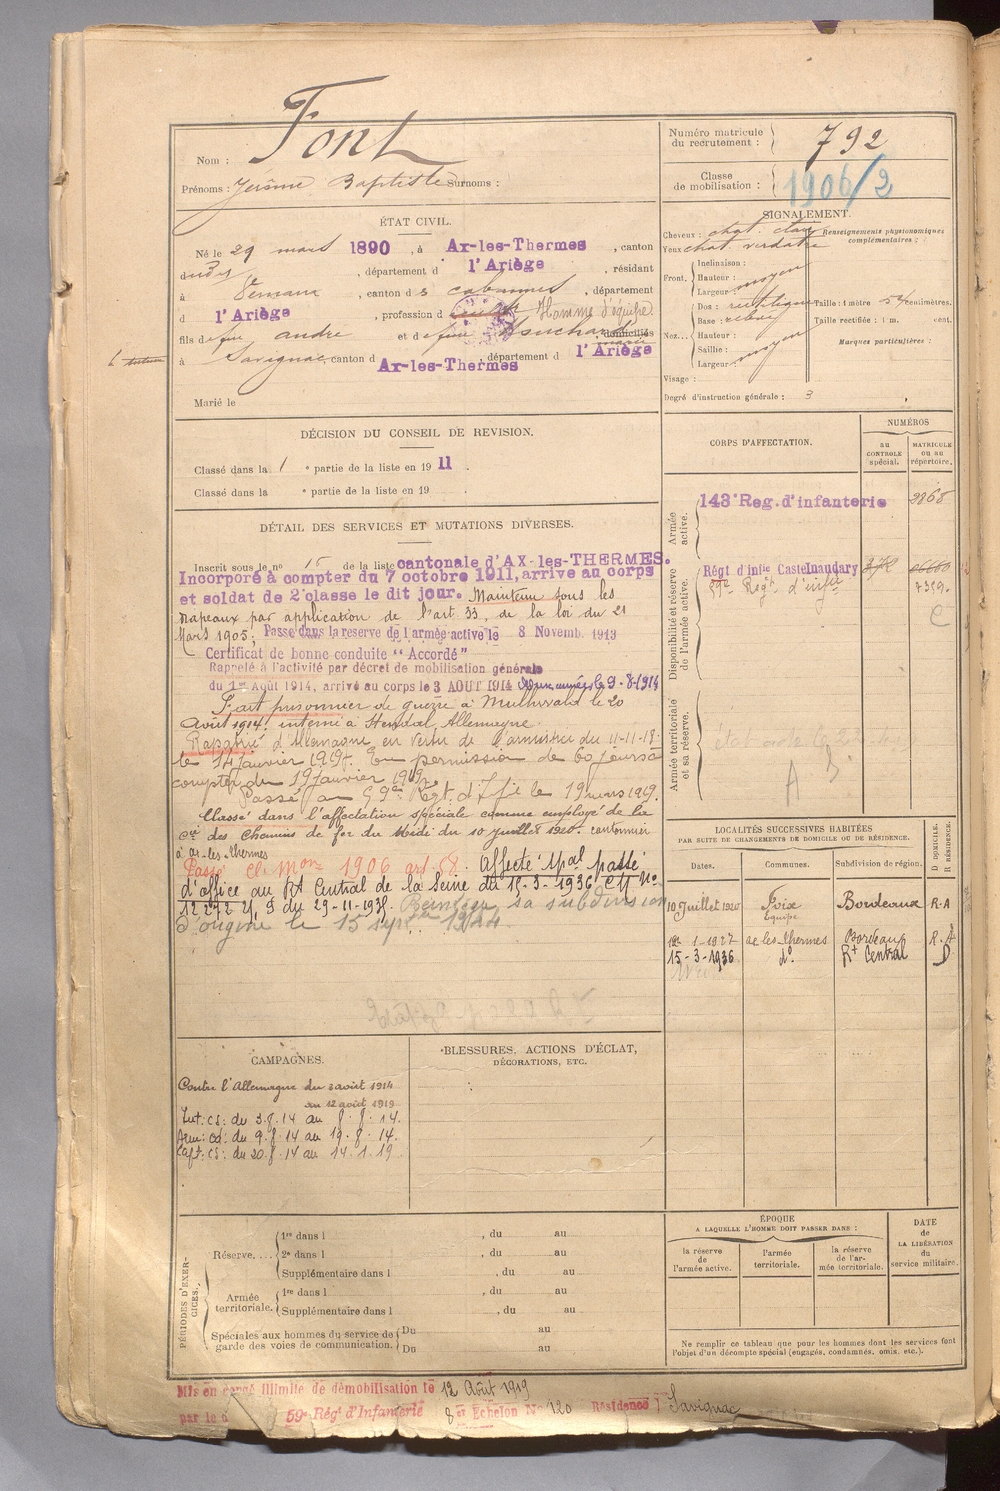 Nom : Font
Prénoms : Jérôme Baptiste Surnoms :
Numéro matricule du recrutement : 792
Classe de mobilisation : 1906/2
ÉTAT CIVIL.
Né le 29 mars 1890, à Ax-les-Thermes, canton
dudit, département d l'Ariège, résidant
à, canton d s cabannes, département
d l'Ariège, profession d Homme d'équipe
fils de feu andre et de feue, domiciliés
à Savignac, canton d Ax-les-Thermes, département d l'Ariège
Marié le
SIGNALEMENT.
Cheveux : chat. clair
Yeux chat. verdatre
Renseignements physionomiques complémentaires :
Front.
Inclinaison :
Hauteur :
Largeur moyen
Nez...
Dos : rectiligne
Base : relevé
Hauteur :
Saillie : moyen
Largeur :
Taille : 1 mètre 57 centimètres.
Taille rectifiée : 1 m. cent.
Marques particulières :
Visage :
Degré d'instruction générale : 3
DÉCISION DU CONSEIL DE REVISION.
Classé dans la 1 e partie de la liste en 1911.
Classé dans la e partie de la liste en 19 .
DÉTAIL DES SERVICES ET MUTATIONS DIVERSES.
Inscrit sous le no 15 de la liste cantonale d'AX-les-THERMES.
Incorporé à compter du 7 octobre 1911, arrive au corps
et soldat de 2e classe le dit jour. Maintenu sous les
drapeaux par application de l'art. 33, de la loi du 21
Mars 1905; Passé dans la reserve de l'armée active le 8 Novemb. 1913
Certificat de bonne conduite "Accordé"
Rappelé à l'activité par décret de mobilisation générale
du 1er Août 1914, arrivé au corps le 3 AOUT 1914 aux armées le 9-8-1914
Fait prisonnier de guerre à le 20
Août 1914, interné à Stendal, Allemagne.
Rapatrié d'Allemagne en vertu de l'armistice du 11-11-18
le 14 janvier 1919. En permission de 60 jours à
compter du 19 janvier 1919.
Passé au 59e Régt. d'Infie le 19 mars 1919.
Classé dans l'affectation spéciale comme employé de la
Cie des Chemins de fer du Midi du 10 juillet 1920. cantonnier
à ax-les-thermes
Passé cl. Mon 1906 art 58. Affecté spal passé
d'office au Rt Central de la Seine du 15-3-1936 CM No
12272 du 29-11-193 sa subdivision
d'origine le 15 sept 1944.
CORPS D'AFFECTATION.
NUMÉROS
au CONTROLE spécial.
MATRICULE ou au répertoire.
Armée active.
143e Reg. d'infanterie 2868
Disponibilité et réserve de l'armée active.
Régt d'infie Castelnaudary
59e Regt d'infie 7359.
Armée territoriale et sa réserve.
LOCALITÉS SUCCESSIVES HABITÉES
PAR SUITE DE CHANGEMENTS DE DOMICILE OU DE RÉSIDENCE.
Dates.
Communes.
Subdivision de région.
D DOMICILE. R RÉSIDENCE.
10 Juillet 1920 Foix Bordeaux R-A
Equipe
1er-1-1927 ax-les-thermes Bordeaux R.A
15-3-1936 do. Rt Central D
CAMPAGNES.
Contre l'Allemagne du 3 août 1914
au 12 août 1919
Int: CS: du 3.8.14 au 8.8.14.
Arm: CD: du 9.8.14 au 19.8.14.
Capt: CS: du 20.8.14 au 14.1.19
BLESSURES, ACTIONS D'ÉCLAT,
DÉCORATIONS, ETC.
PÉRIODES D'EXERCICES.
Réserve....
1re dans l , du au
2e dans l , du au
Supplémentaire dans l , du au
Armée territoriale.
1re dans l , du au
Supplémentaire dans l , du au
Spéciales aux hommes du service de garde des voies de communication.
Du au
Du au
ÉPOQUE
A LAQUELLE L'HOMME DOIT PASSER DANS :
la réserve de l'armée active.
l'armée territoriale.
la réserve de l'armée territoriale.
DATE de LA LIBÉRATION du service militaire.
Ne remplir ce tableau que pour les hommes dont les services font
l'objet d'un décompte spécial (engagés, condamnés, omis, etc.).
Mis en congé illimité de démobilisation le 12 Août 1919
par le 59e Régt d'Infanterie 8er Echelon No 120 Résidence Savignac